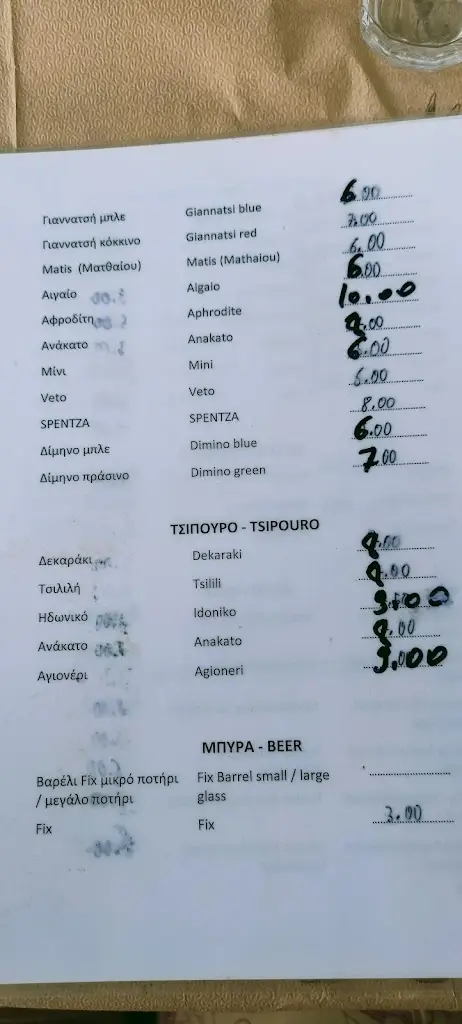 Γιαννατσή μπλε Giannatsi blue 6.00
Γιαννατσή κόκκινο Giannatsi red 7.00
Matis (Ματθαίου) Matis (Mathaiou) 6.00
Αιγαίο Aigaio 6.00
Αφροδίτη Aphrodite 10.00
Ανάκατο Anakato 8.00
Μίνι Mini 6.00
Veto Veto 6.00
SPENTZA SPENTZA 8.00
Δίμηνο μπλε Dimino blue 6.00
Δίμηνο πράσινο Dimino green 7.00
ΤΣΙΠΟΥΡΟ - TSIPOURO
Δεκαράκι Dekaraki 8.00
Τσιλιλή Tsilili 8.00
Ηδωνικό Idoniko 9.00
Ανάκατο Anakato 8.00
Αγιονέρι Agioneri 9.00
ΜΠΥΡΑ - BEER
Βαρέλι Fix μικρό ποτήρι Fix Barrel small / large
/ μεγάλο ποτήρι glass
Fix Fix 3.00